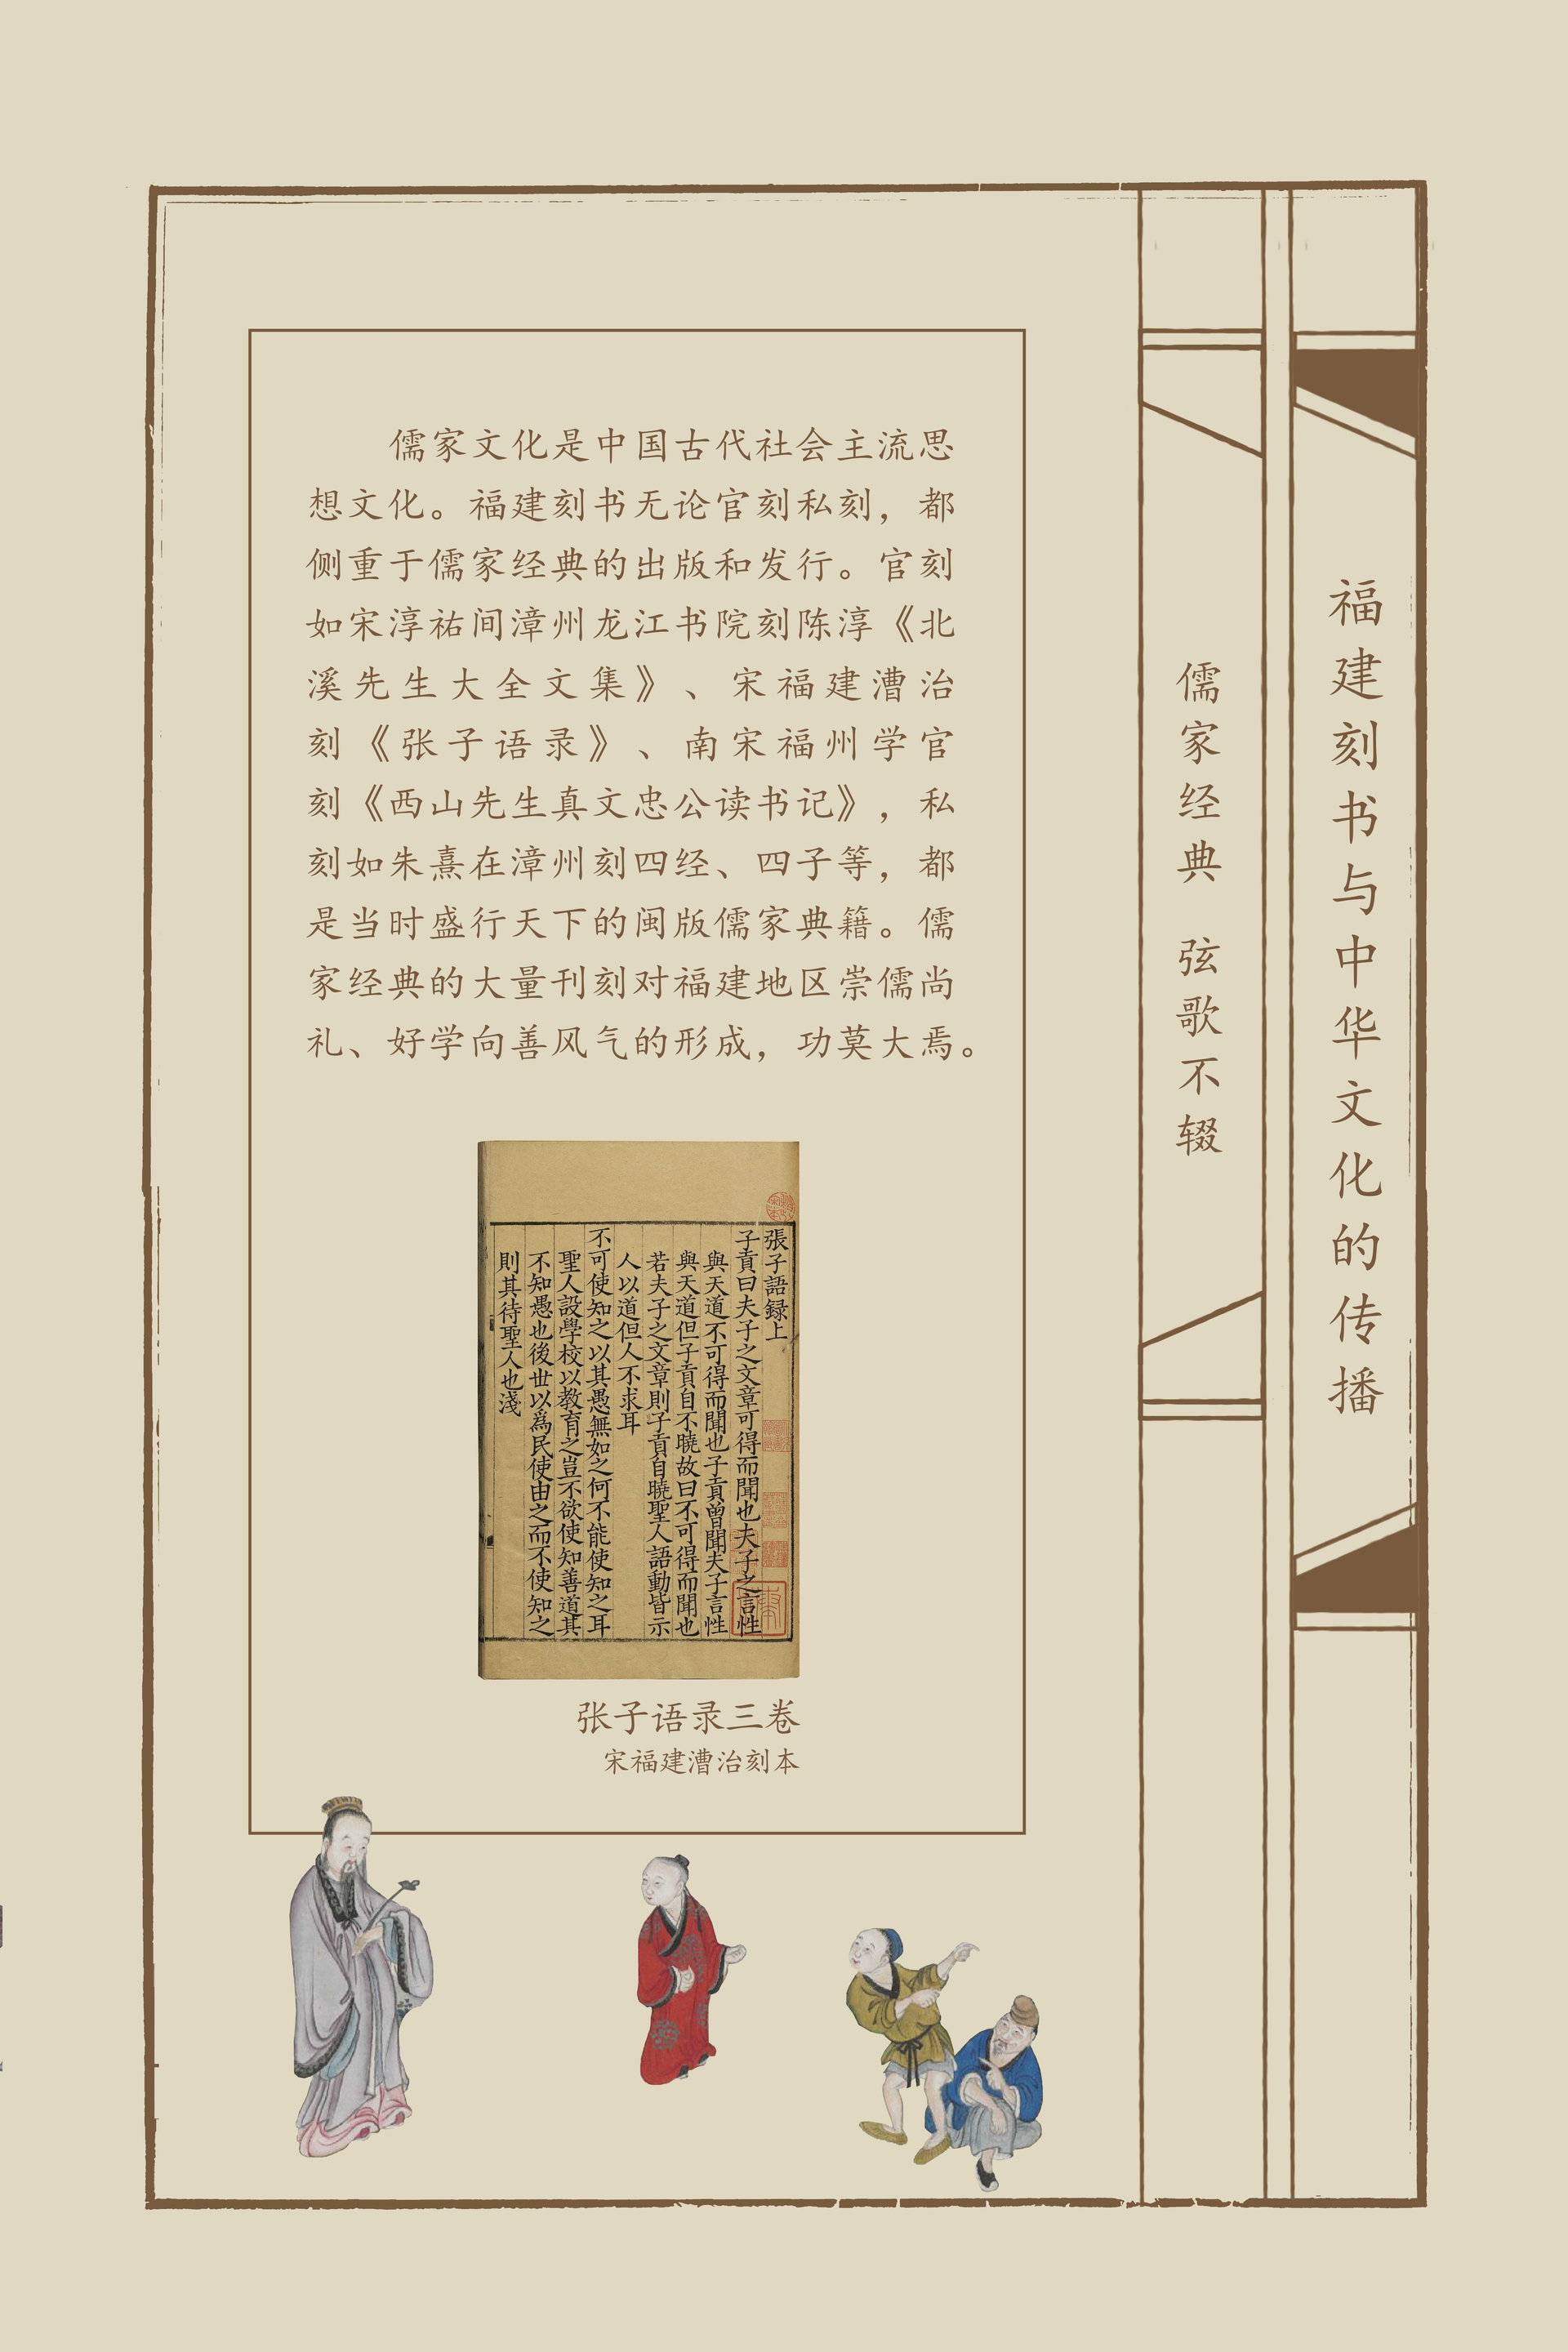 福建刻书与中华文化的传播
儒家经典 弦歌不辍
儒家文化是中国古代社会主流思
想文化。福建刻书无论官刻私刻，都
侧重于儒家经典的出版和发行。官刻
如宋淳祐间漳州龙江书院刻陈淳《北
溪先生大全文集》、宋福建漕治
刻《张子语录》、南宋福州学官
刻《西山先生真文忠公读书记》，私
刻如朱熹在漳州刻四经、四子等，都
是当时盛行天下的闽版儒家典籍。儒
家经典的大量刊刻对福建地区崇儒尚
礼、好学向善风气的形成，功莫大焉。
張子語録上
子貢曰夫子之文章可得而聞也夫子之言性
與天道不可得而聞也子貢曾聞夫子言性
與天道但子貢自不曉故曰不可得而聞也
若夫子之文章則子貢自曉聖人語動皆示
人以道但人不求耳
不可使知之以其愚無如之何不能使知之耳
聖人設學校以教育之豈不欲使知善道其
不知愚也後世以爲民使由之而不使知之
則其待聖人也淺
张子语录三卷
宋福建漕治刻本